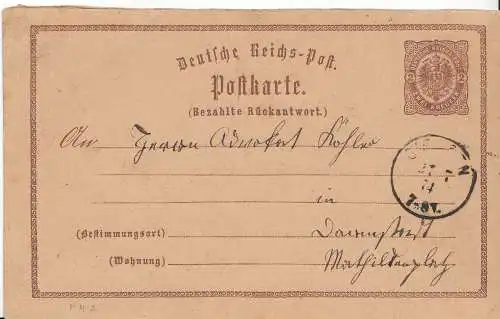 Deutsche Reichs-Post.
Postkarte.
(Bezahlte Rückantwort.)
2 2
An Herrn Advokat Köhler
27 7
74
7-8V.
in
(Bestimmungsort) Darmstadt
(Wohnung) Mathildenplatz